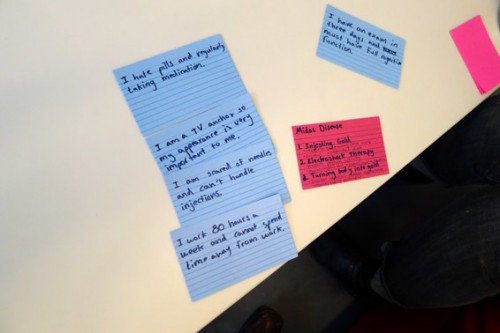 I hate pills and regularly
taking medication.
I am a TV anchor so
my appearance is very
important to me.
I am scared of needles
and can't handle
injections.
I work 80 hours a
week and cannot spend
time away from work.
I have an exam in
three days and
must have full cognitive
function.
Midas Disease
1. Injecting Gold
2. Electroshock Therapy
3. Turning body into gold